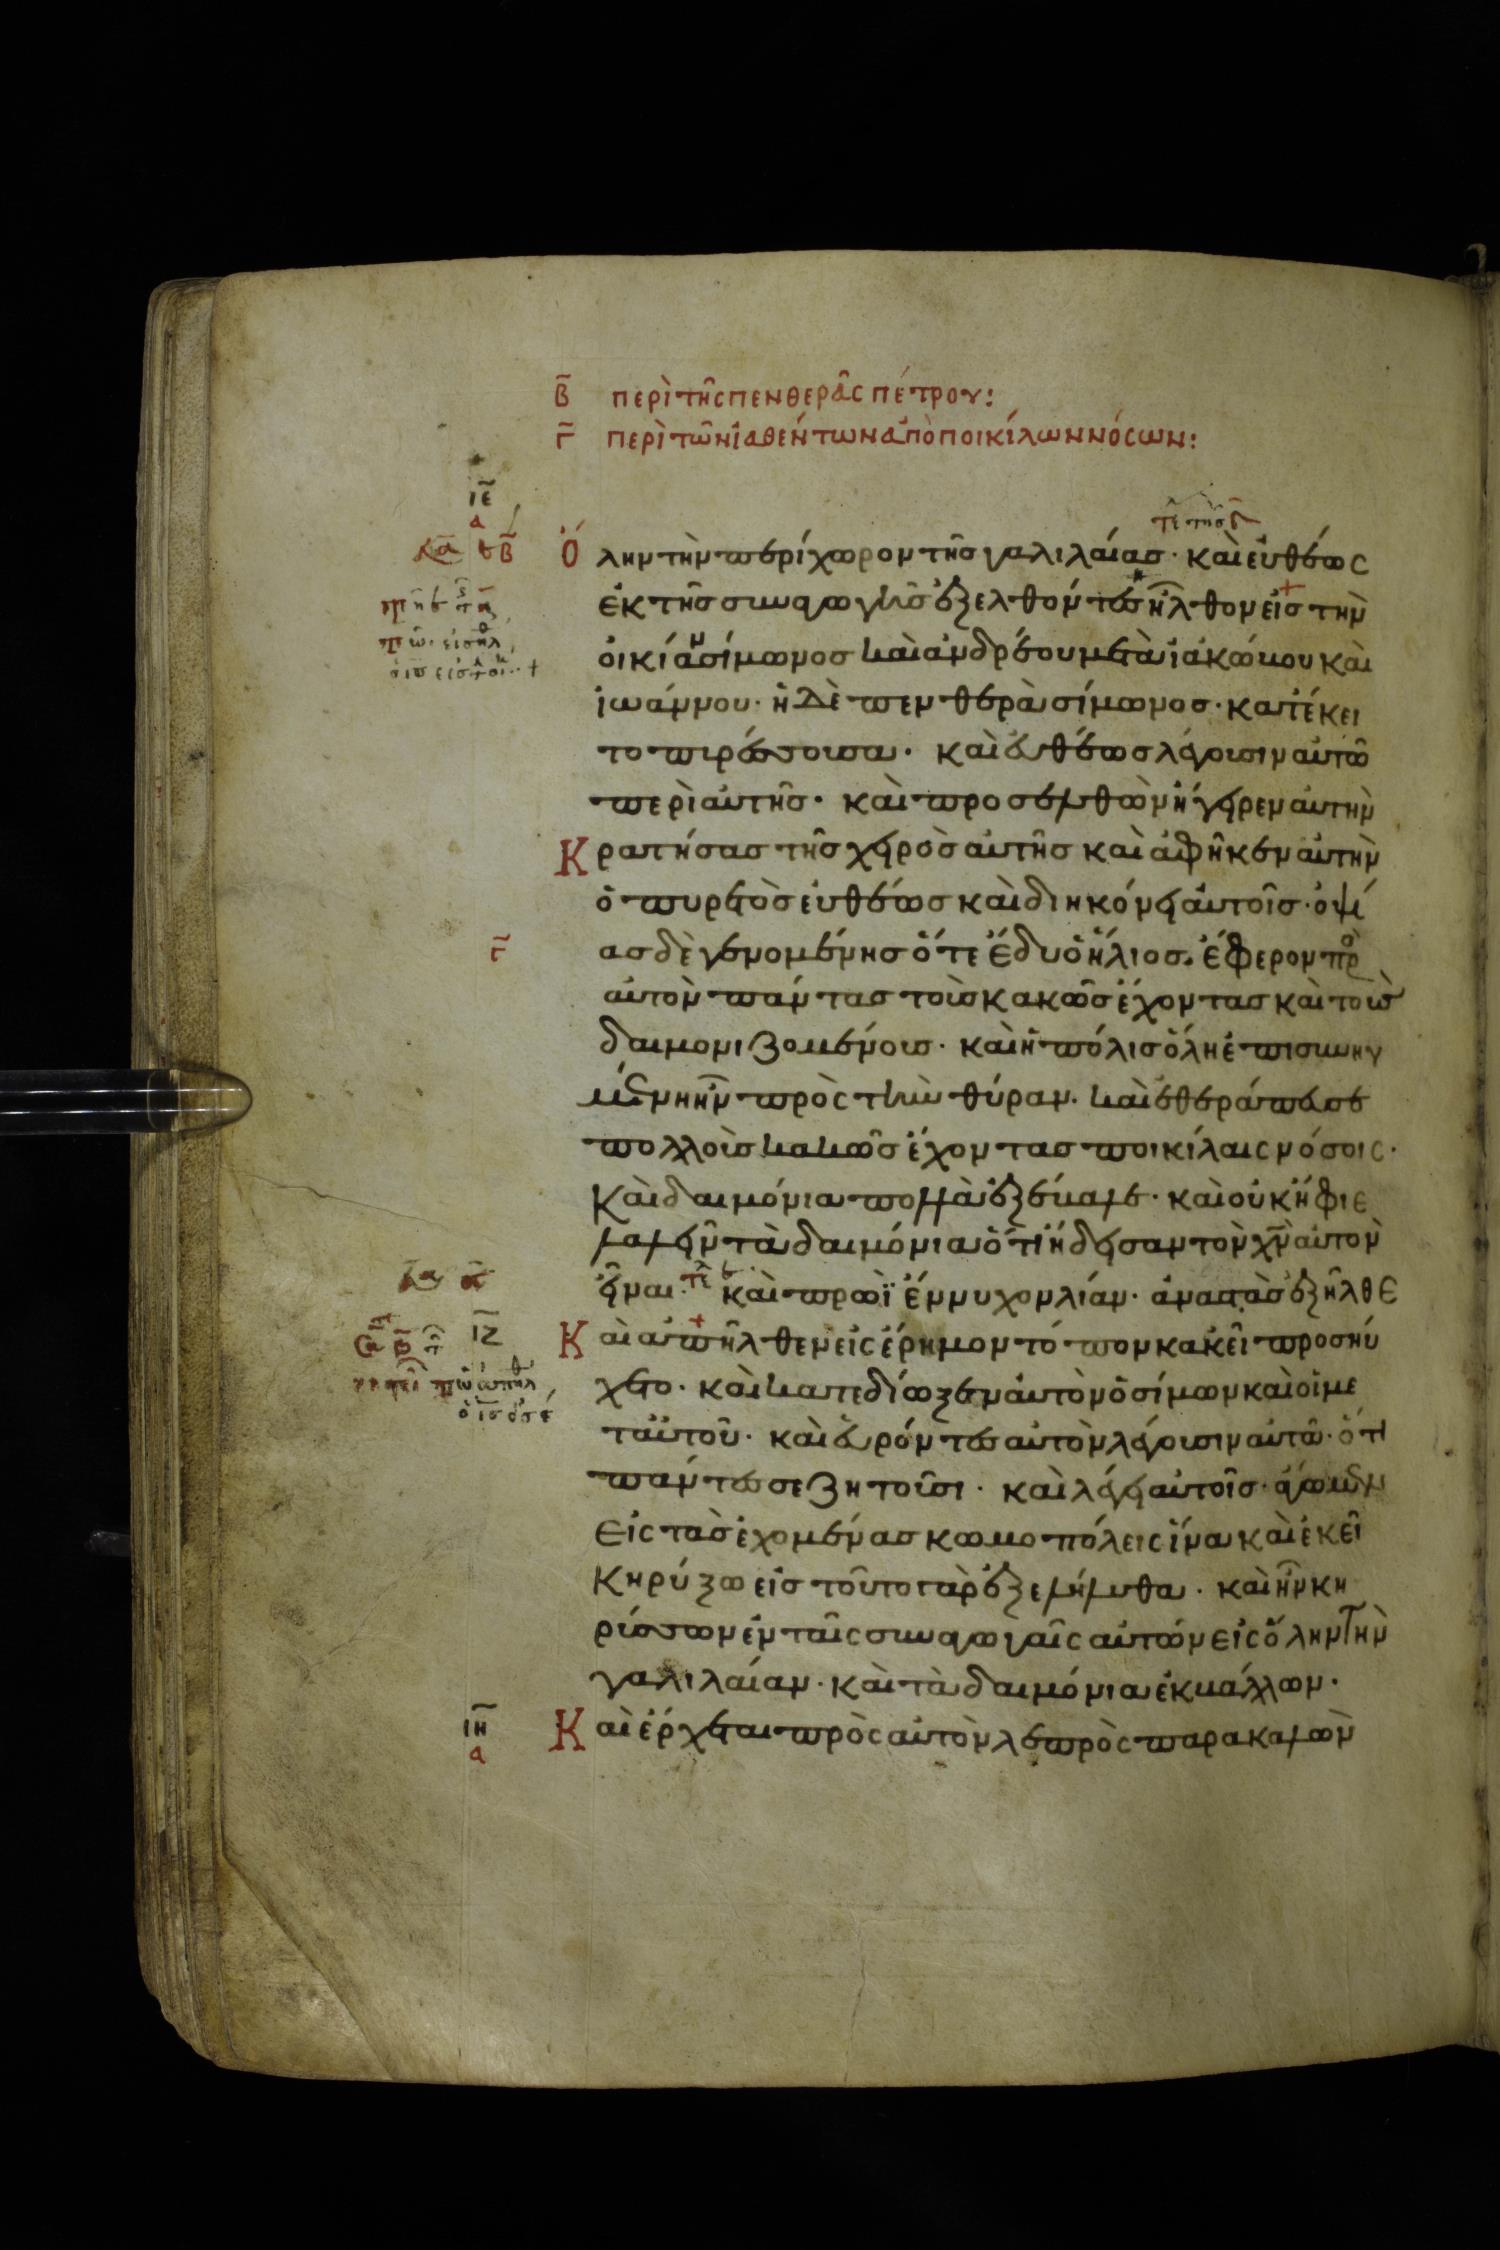 β̄ περὶ τῆς πενθερᾶς πέτρου:
γ̄ περὶ τῶν ἰαθέντων ἀπὸ ποικίλων νόσων:
ῑε̄
α
β̄
Ὅλην τὴν περίχωρον τῆς γαλιλαίας· καὶ εὐθέως
ἐκ τῆς συναγωγῆς ἐξελθόντες ἦλθον εἰς τὴν
οἰκίαν σίμωνος καὶ ἀνδρέου μετὰ ἰακώβου καὶ
ἰωάννου· ἡ δὲ πενθερὰ σίμωνος· κατέκει
το πυρέσσουσα· καὶ εὐθέως λέγουσιν αὐτῶ
περὶ αὐτῆς· καὶ προσελθὼν ἤγειρεν αὐτὴν
Κρατήσας τῆς χειρὸς αὐτῆς καὶ ἀφῆκεν αὐτὴν
ὁ πυρετὸς εὐθέως καὶ διηκόνει αὐτοῖς· ὀψί
γ̄
ας δὲ γενομένης ὅτε ἔδυ ὁ ἥλιος. ἔφερον πρὸ
αὐτὸν πάντας τοὺς κακῶς ἔχοντας καὶ τοὺς
δαιμονιζομένους· καὶ ἡ πόλις ὅλη ἐπισυνηγ
μένη ἦν πρὸς τὴν θύραν· καὶ ἐθεράπευσε
πολλοὺς κακῶς ἔχοντας ποικίλαις νόσοις·
Καὶ δαιμόνια πολλὰ ἐξέβαλε· καὶ οὐκ ἤφιε
λαλεῖν τὰ δαιμόνια ὅτι ἤδεισαν τὸν χ̄ν̄ αὐτὸν
εἶναι· καὶ πρωῒ ἔννυχον λίαν· ἀναστὰς ἐξῆλθε
ῑζ̄
Καὶ ἀπῆλθεν εἰς ἔρημον τόπον κακεῖ προσηύ
χετο· καὶ κατεδίωξεν αὐτὸν ὁ σίμων καὶ οἱ με
τ αὐτοῦ· καὶ εὑρόντες αὐτὸν λέγουσιν αὐτῶ· ὅτι
πάντες σε ζητοῦσι· καὶ λέγει αὐτοῖς· ἄγωμεν
εἰς τὰς ἐχομένας κωμοπόλεις ἵνα καὶ ἐκεῖ
Κηρύξω εἰς τοῦτο γὰρ ἐξελήλυθα· καὶ ἦν κη
ρύσσων ἐν ταῖς συναγωγαῖς αὐτῶν εἰς ὅλην τὴν
γαλιλαίαν· καὶ τὰ δαιμόνια ἐκβάλλων·
ῑη̄
α
Καὶ ἔρχεται πρὸς αὐτὸν λεπρὸς παρακαλῶν